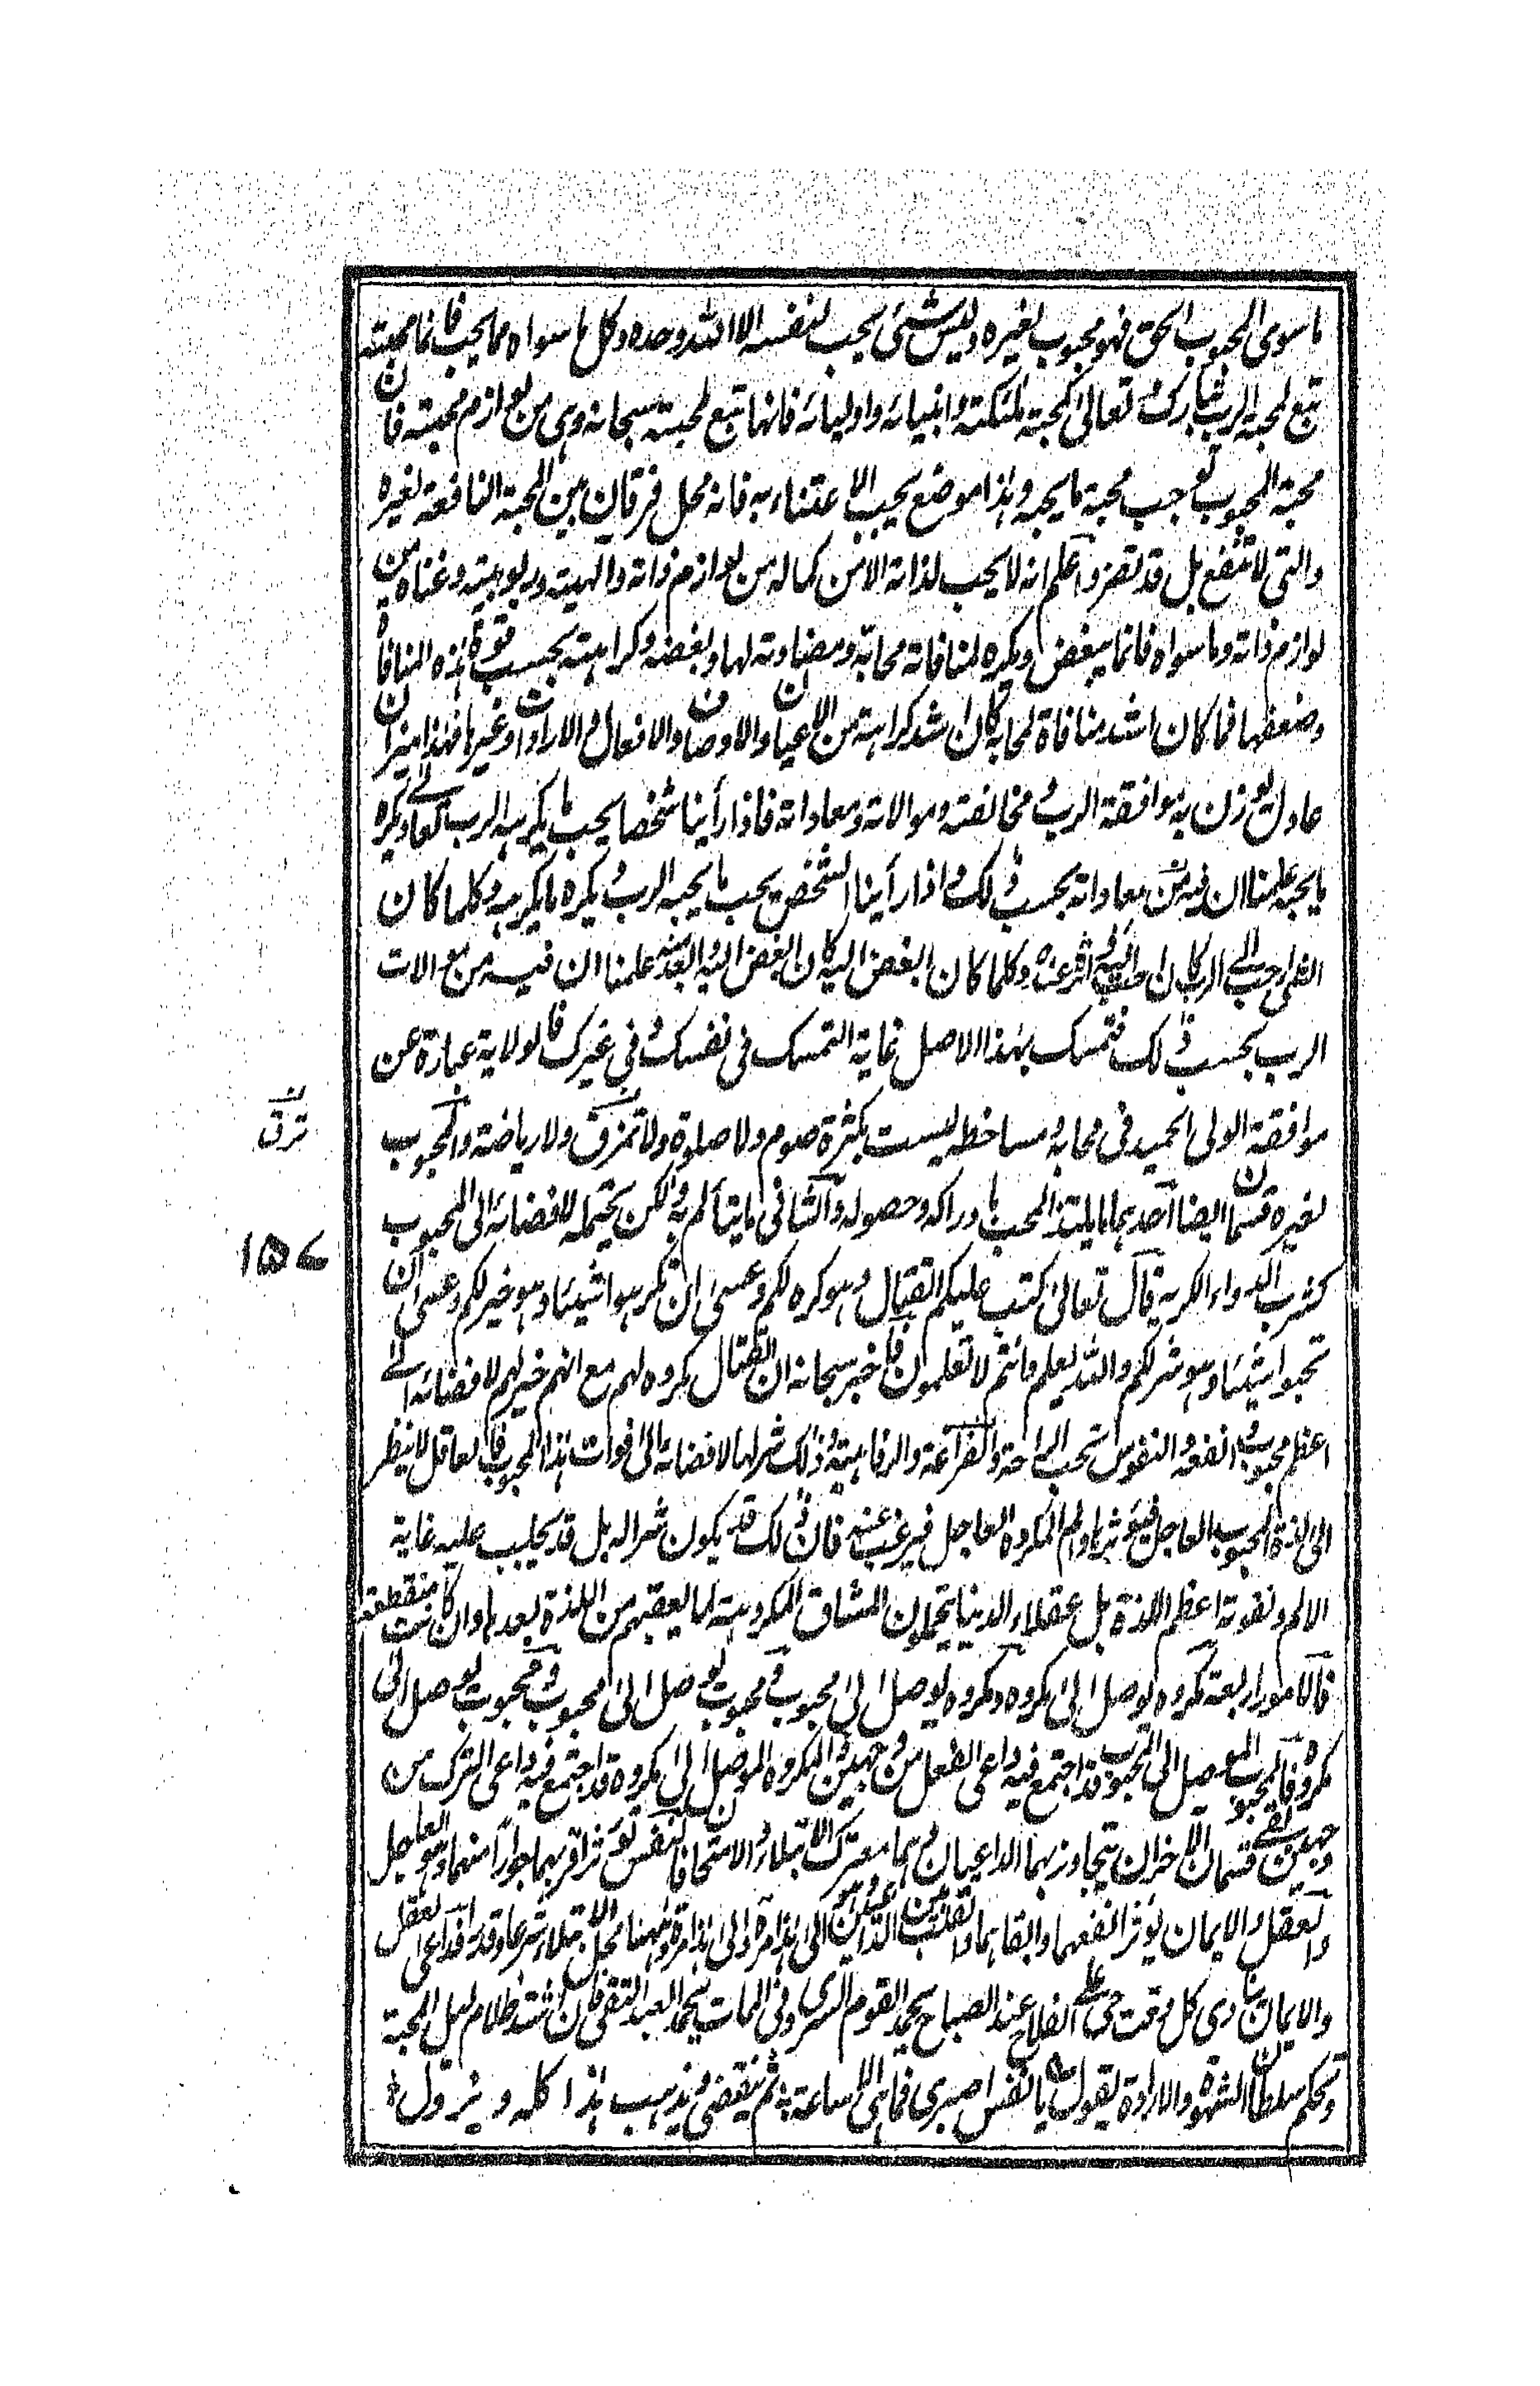 ما سوى المحبوب الحق فهو محبوب لغيره وليس شئ يحب لنفسه الا الله وحده وكل ما سواه مما يحب فانما محبته
تبع لمحبة الرب تبارك وتعالى كمحبة ملئكته وانبيائه واوليائه فانها تبع لمحبته سبحانه وهى من لوازم محبته فان
محبة المحبوب توجب محبة ما يحبه وهذا موضع يجب الاعتناء به فانه محل فرقان بين المحبة النافعة لغيره
والتى لا تنفع بل قد تضر واعلم انه لا يحب لذاته الا من كماله من لوازم ذاته والهيته وربوبيته وغناه من
لوازم ذاته وما سواه فانما يبغض ويكره لمنافاته محابه ومضاوته لها وبغضه وكراهيته بحسب قوة هذه المنافاة
وضعفها فما كان اشد منافاة لمحابه كان اشد كراهة من الاعيان والاوصاف والافعال والارادات وغيرها فهذا ميزان
عادل يوزن به موافقة الرب ومخالفته وموالاته ومعاداته فاذا رأينا شخصا يحب ما يكرهه الرب تعالى ويكره
ما يحبه علمنا ان فيه من معاداته بحسب ذلك واذا رأينا الشخص يحب ما يحبه الرب ويكره ما يكرهه وكلما كان
الفعل احب الى الرب كان احب اليه وآثر عنده وكلما كان ابغض اليه كان ابغض اليه وابعد منه علمنا ان فيه من موالات
الرب بحسب ذلك فتمسك بهذا الاصل غاية التمسك فى نفسك وفى غيرك فالولاية عبارة عن
موافقة الولى الحميد فى محابه ومساخطه ليست بكثرة صوم ولا صلوة ولا تمزق ولا رياضة والمحبوب
ترق
لغيره قسمان ايضا احدهما ما يلتذ المحب بادراكه وحصوله والثانى ما يتألم به ولكن يحتمله لافضائه الى المحبوب
١٥٧
كشرب الدواء الكريه قال تعالى كتب عليكم القتال وهو كره لكم وعسى ان تكرهوا شيئا وهو خير لكم وعسى ان
تحبوا شيئا وهو شر لكم والله يعلم وانتم لا تعلمون فاخبر سبحانه ان القتال مكروه لهم مع انهم خير لهم لافضائه الى
اعظم محبوب وانفعه والنفوس تحب الراحة والفراغة والرفاهية وذلك شر لها لافضائه الى فوات هذا المحبوب فالعاقل لا ينظر
الى لذة المحبوب العاجل فيؤثرها والم المكروه العاجل فيرغب عنه فان ذلك قد يكون شرا له بل قد يجلب عليه غاية
الالم وتفوته اعظم اللذة بل عقلاء الدنيا يتحملون المشاق المكروهة لما يعقبهم من اللذة بعدها وان كانت منقطعة
فالامور اربعة مكروه يوصل الى مكروه ومكروه يوصل الى محبوب ومحبوب يوصل الى محبوب ومحبوب يوصل الى
مكروه فالمحبوب الموصل الى المحبوب قد اجتمع فيه داعى الفعل من وجهين والمكروه الموصل الى مكروه قد اجتمع فيه داعى الترك من
وجهين بقى قسمان الاخران يتجاوزبهما الداعيان وهما معترك الابتلاء والامتحان فالنفس تؤثر اقربهما جوارا منهما وهو العاجل
والعقل والايمان يؤثر انفعهما وابقاهما والقلب بين الداعيين وهو الى هذا مرة والى هذا مرة وههنا محل الابتلاء شرعا وقدرا فداعى العقل
والايمان ينادى كل وقت حى على الفلاح عند الصباح يحمد القوم السرى وفى الممات يحمد العبد التقى فان اشتد ظلام ليل المحبة
وتحكم سلطان الشهوة والارادة يقول يا نفس اصبرى فما هى الا ساعة ثم تنقضى ويذهب هذا كله ويزول